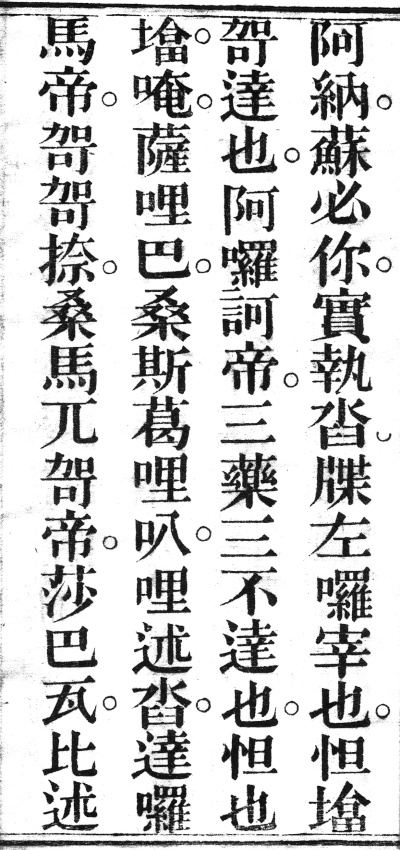 阿納。蘇必你。實執沓。牒左囉宰也。怛塎
哿達也。阿囉訶帝。三藥三不達也。怛也
塎。唵。薩哩巴。桑斯葛哩叭。哩述沓。達囉
馬帝。哿哿捺。桑馬兀哿帝。莎巴瓦。比述